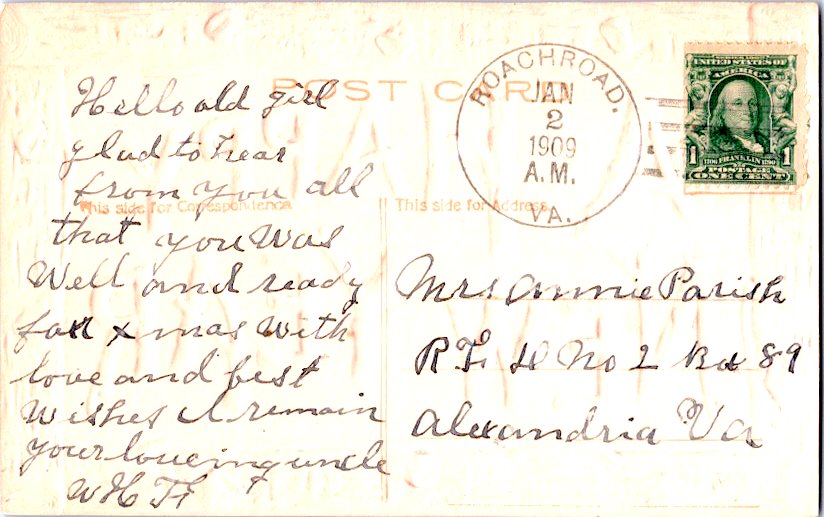 POST CARD
ROACHROAD.
JAN
2
1909
A.M.
VA.
UNITED STATES OF
AMERICA
1706 FRANKLIN 1790
1 1
POSTAGE
ONE CENT
This side for Correspondence
This side for Address
Hello old girl
glad to hear
from you all
that you Was
Well and ready
for xmas With
love and best
Wishes I remain
your loveing uncle
W H F
Mrs Annie Parish
R F D No 2 Bx 89
Alexandria Va